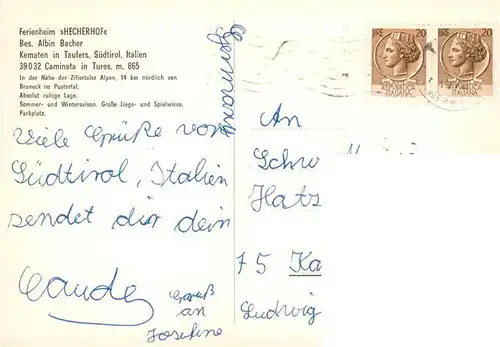 Ferienheim »HECHERHOF«
Bes. Albin Bacher
Kematen in Taufers, Südtirol, Italien
39032 Caminata in Tures, m. 865
In der Nähe der Zillertaler Alpen, 14 km nördlich von
Bruneck im Pustertal.
Absolut ruhige Lage.
Sommer- und Wintersaison. Große Liege- und Spielwiese,
Parkplatz.
Viele Grüße von
Südtirol, Italien
sendet dir dein
Gruß
an
Josefine
Germany
20
REPVBBLICA
ITALIANA
20
REPVBBLICA
ITALIANA
An
Schw
Hats
75 Ka
Ludwig